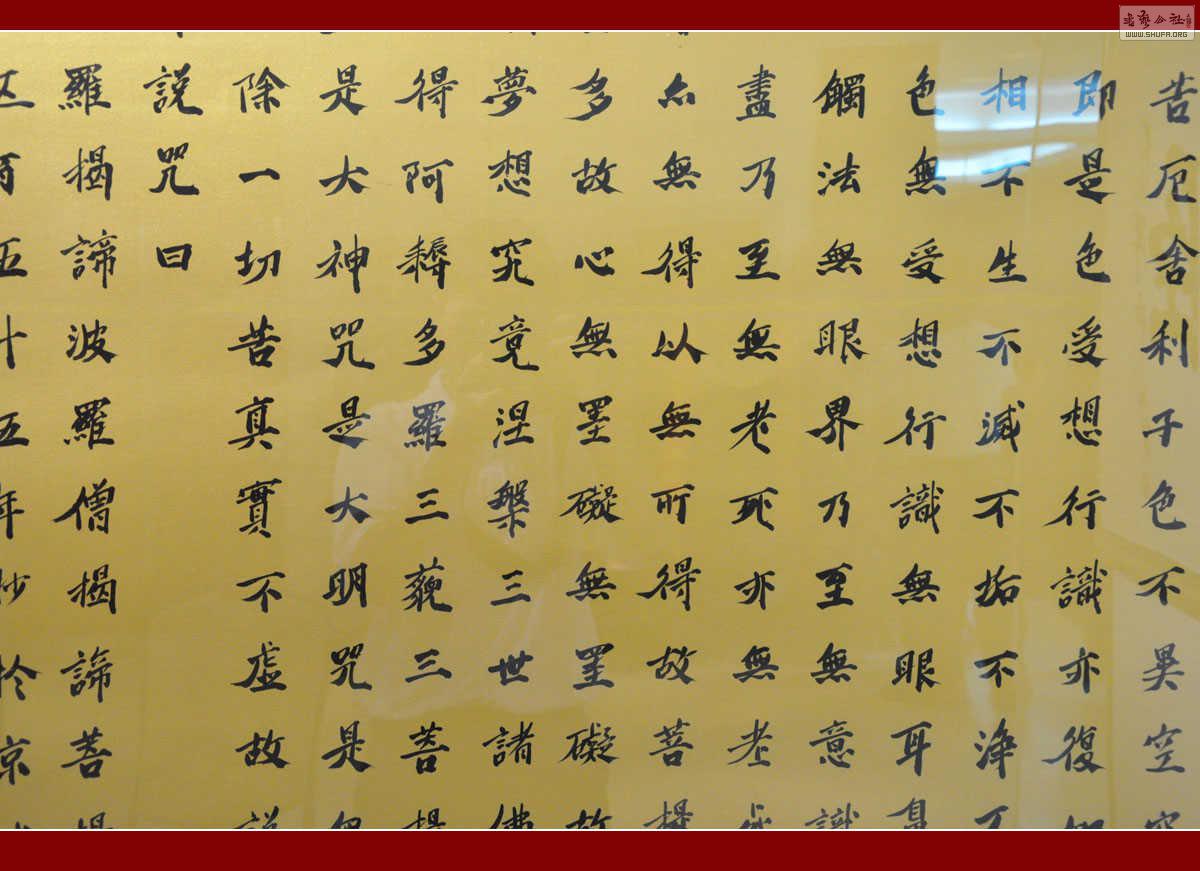 苦厄舍利子色不異空
即是色受想行識亦復
相不生不滅不垢不淨不
色無受想行識無眼耳鼻
觸法無眼界乃至無意識
盡乃至無老死亦無老
亦無得以無所得故菩提
多故心無罣礙無罣礙故
夢想究竟涅槃三世諸佛
得阿耨多羅三藐三菩提
是大神咒是大明咒是
除一切苦真實不虛故說
說咒曰
羅揭諦波羅僧揭諦菩
五十五年抄於京
WWW.SHUFA.ORG